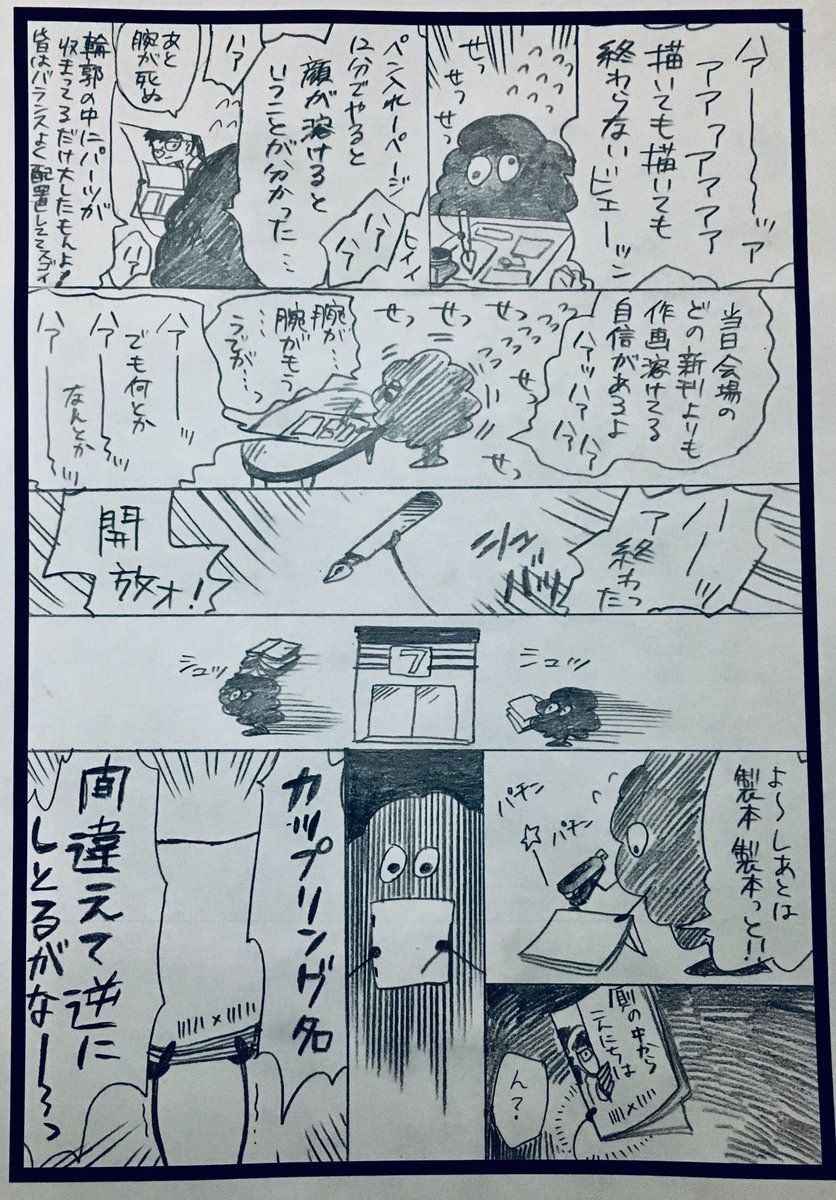 ハァー――ッァ
アアァアアァァ
描いても描いても
終わらないビェーッン
せっ
せっ
せっ
ペン入れ一ページ
12分でやると
顔が溶けると
いうことが分かった…
ヒィィ
ハァ
ハァ
ハァ
あと
腕が死ぬ
輪郭の中にパーツが
収まってるだけ大したもんよ!
皆はバランスよく配置しててスゴイ
ハァ
当日会場の
どの新刊よりも
作画溶けてる
自信があるよ
ハァッハァハァ
せっ
せっ
せっ
せっ
せっ
腕が…
腕がもう
…うでが…っ
ハァ――ッ
でも何とか
ハァ――ッ
なんとか
ハァ――〜ッ
ハーッ
ァ終わった
開放ォ!
シュッ
7
シュッ
よ〜しあとは
製本製本っと!!
パチン
パチン
厠の中から
こんにちは
ん?
カップリング名
間違えて逆に
しとるがな――〜っ